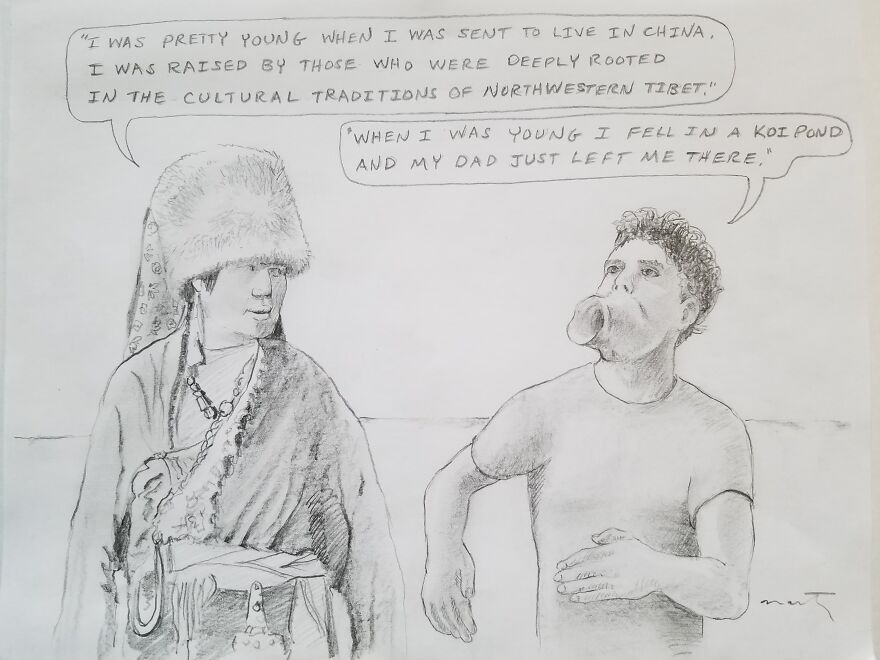 "I WAS PRETTY YOUNG WHEN I WAS SENT TO LIVE IN CHINA.
I WAS RAISED BY THOSE WHO WERE DEEPLY ROOTED
IN THE CULTURAL TRADITIONS OF NORTHWESTERN TIBET."
"WHEN I WAS YOUNG I FELL IN A KOI POND
AND MY DAD JUST LEFT ME THERE."